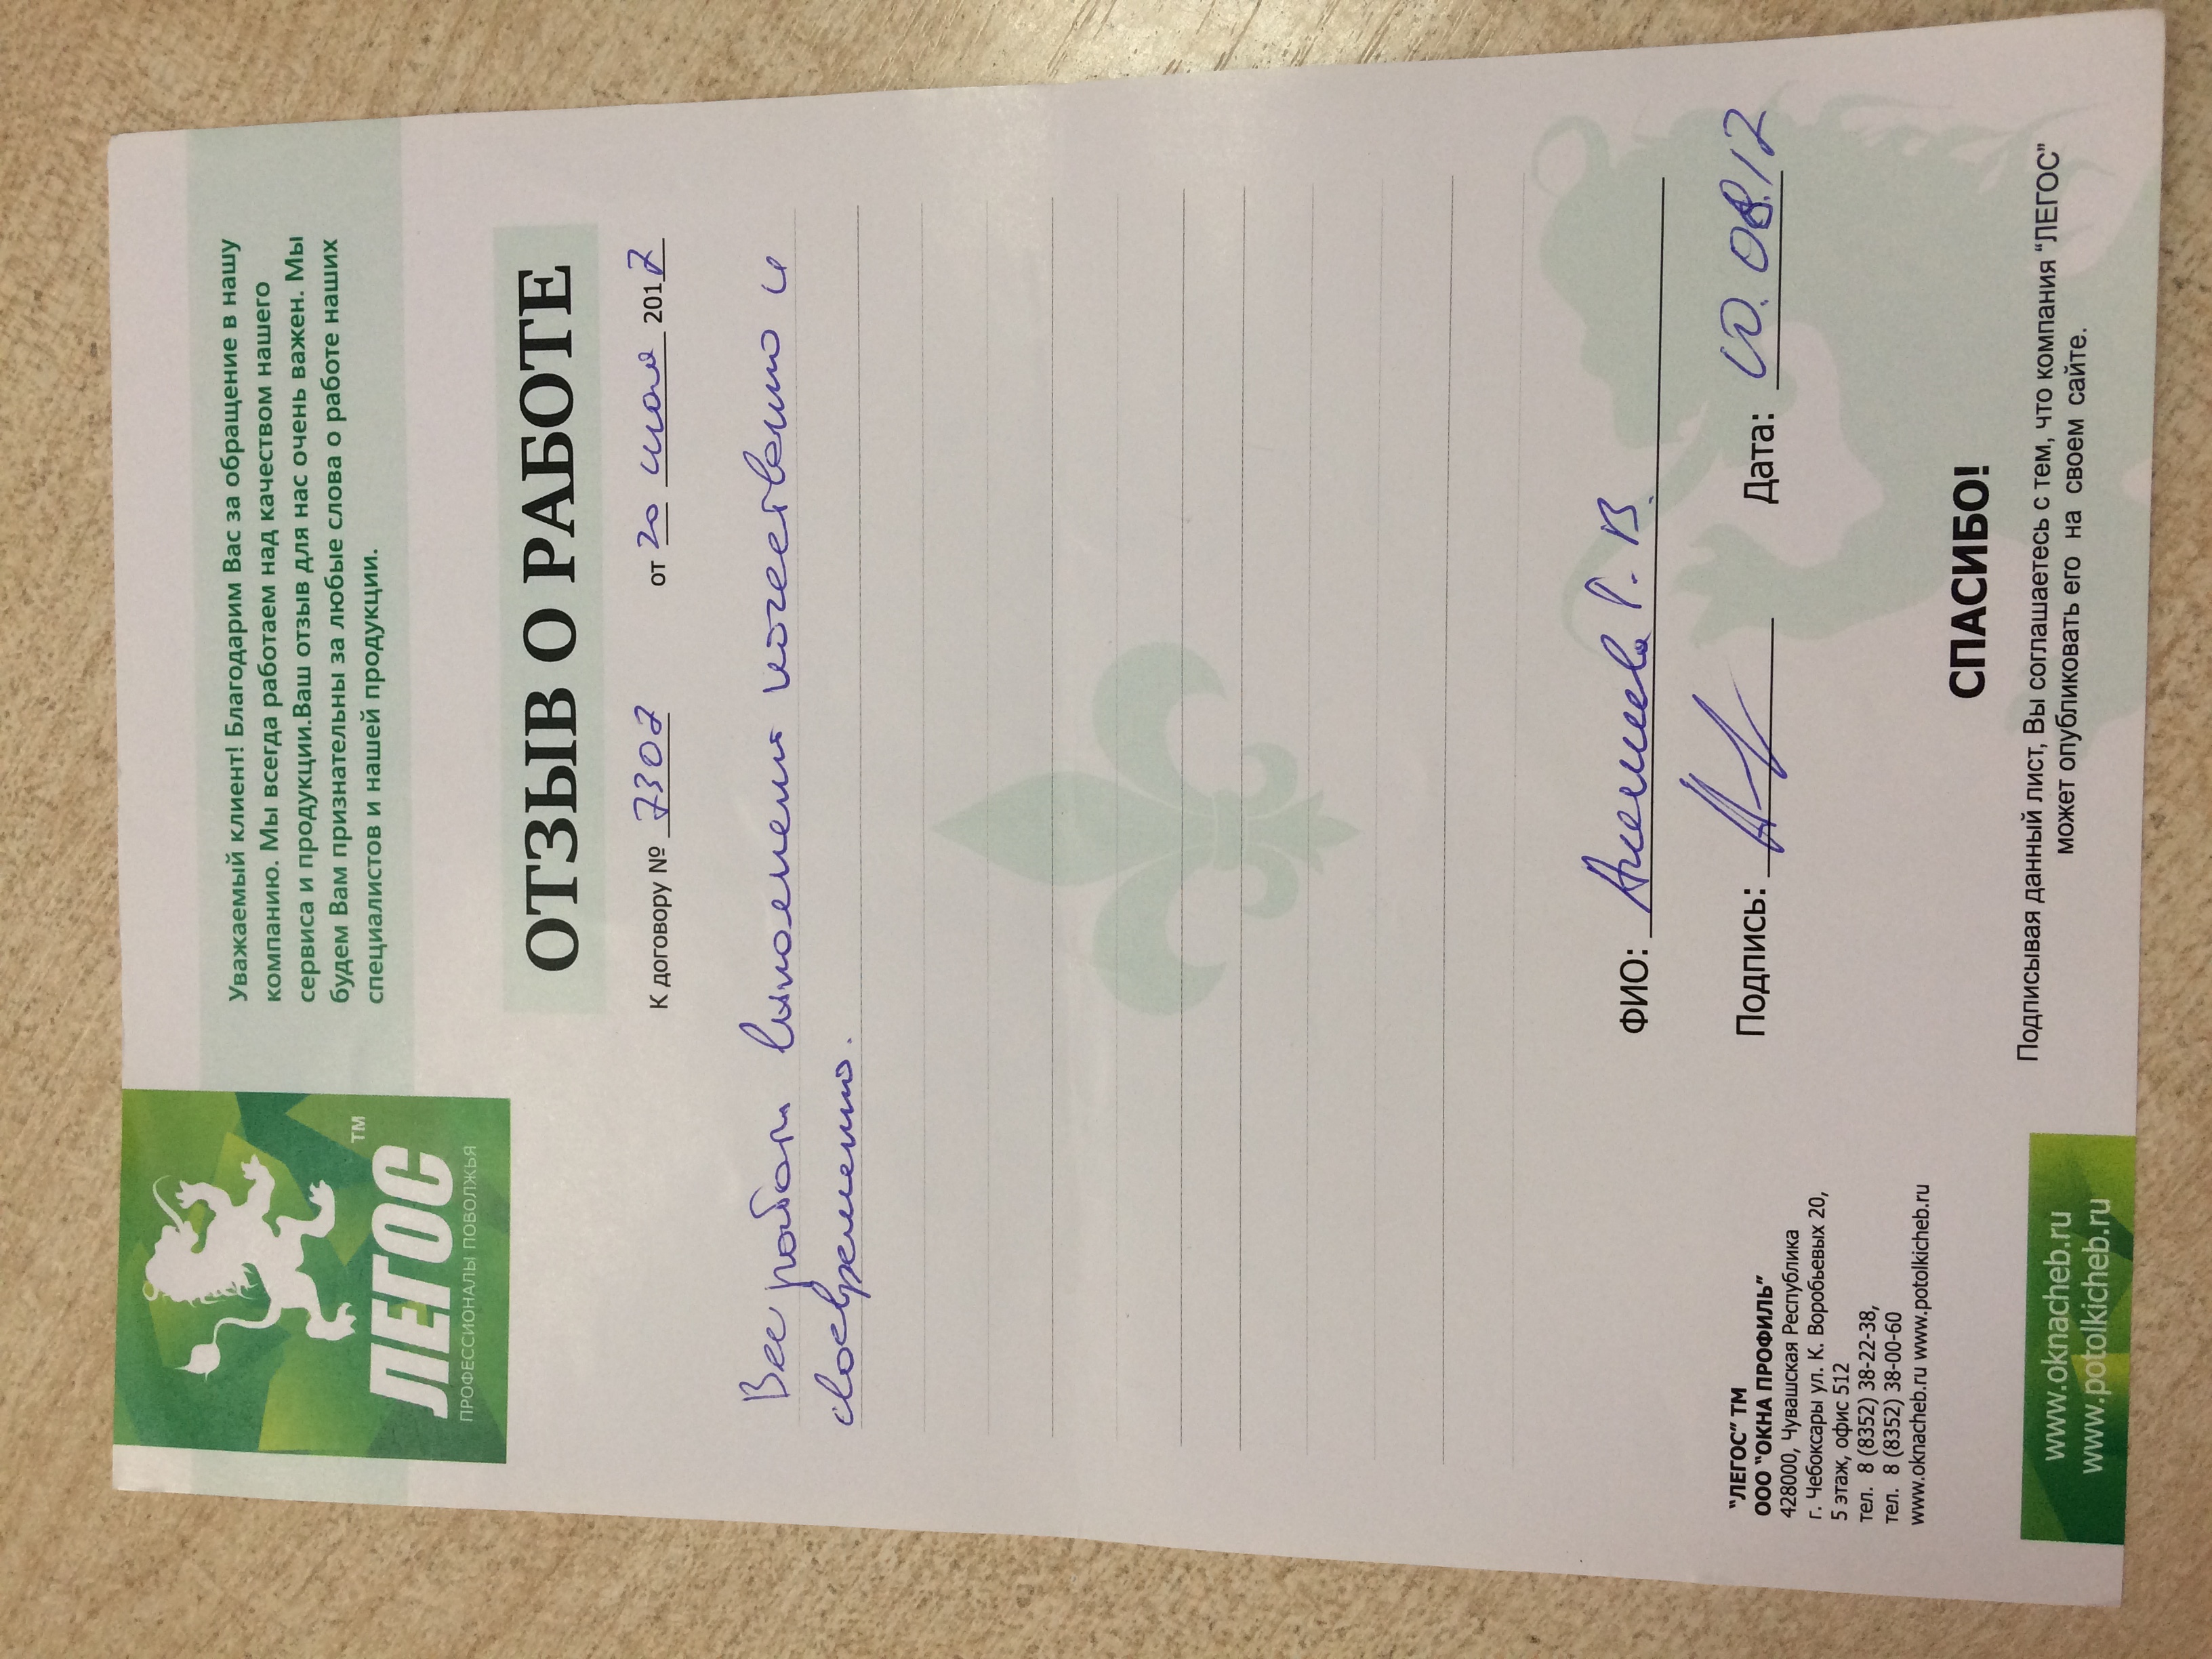 ТМ
ЛЕГОС
ПРОФЕССИОНАЛЫ ПОВОЛЖЬЯ
Уважаемый клиент! Благодарим Вас за обращение в нашу
компанию. Мы всегда работаем над качеством нашего
сервиса и продукции.Ваш отзыв для нас очень важен. Мы
будем Вам признательны за любые слова о работе наших
специалистов и нашей продукции.
ОТЗЫВ О РАБОТЕ
К договору № 7307 от 20 июля 2017
Все работы выполнены качественно и
своевременно.
ФИО: Г. В.
Подпись: Дата: 10.08.17
"ЛЕГОС" ТМ
ООО "ОКНА ПРОФИЛЬ"
428000, Чувашская Республика
г. Чебоксары ул. К. Воробьевых 20,
5 этаж, офис 512
тел. 8 (8352) 38-22-38,
тел. 8 (8352) 38-00-60
www.oknacheb.ru www.potolkicheb.ru
www.oknacheb.ru
www.potolkicheb.ru
СПАСИБО!
Подписывая данный лист, Вы соглашаетесь с тем, что компания "ЛЕГОС"
может опубликовать его на своем сайте.